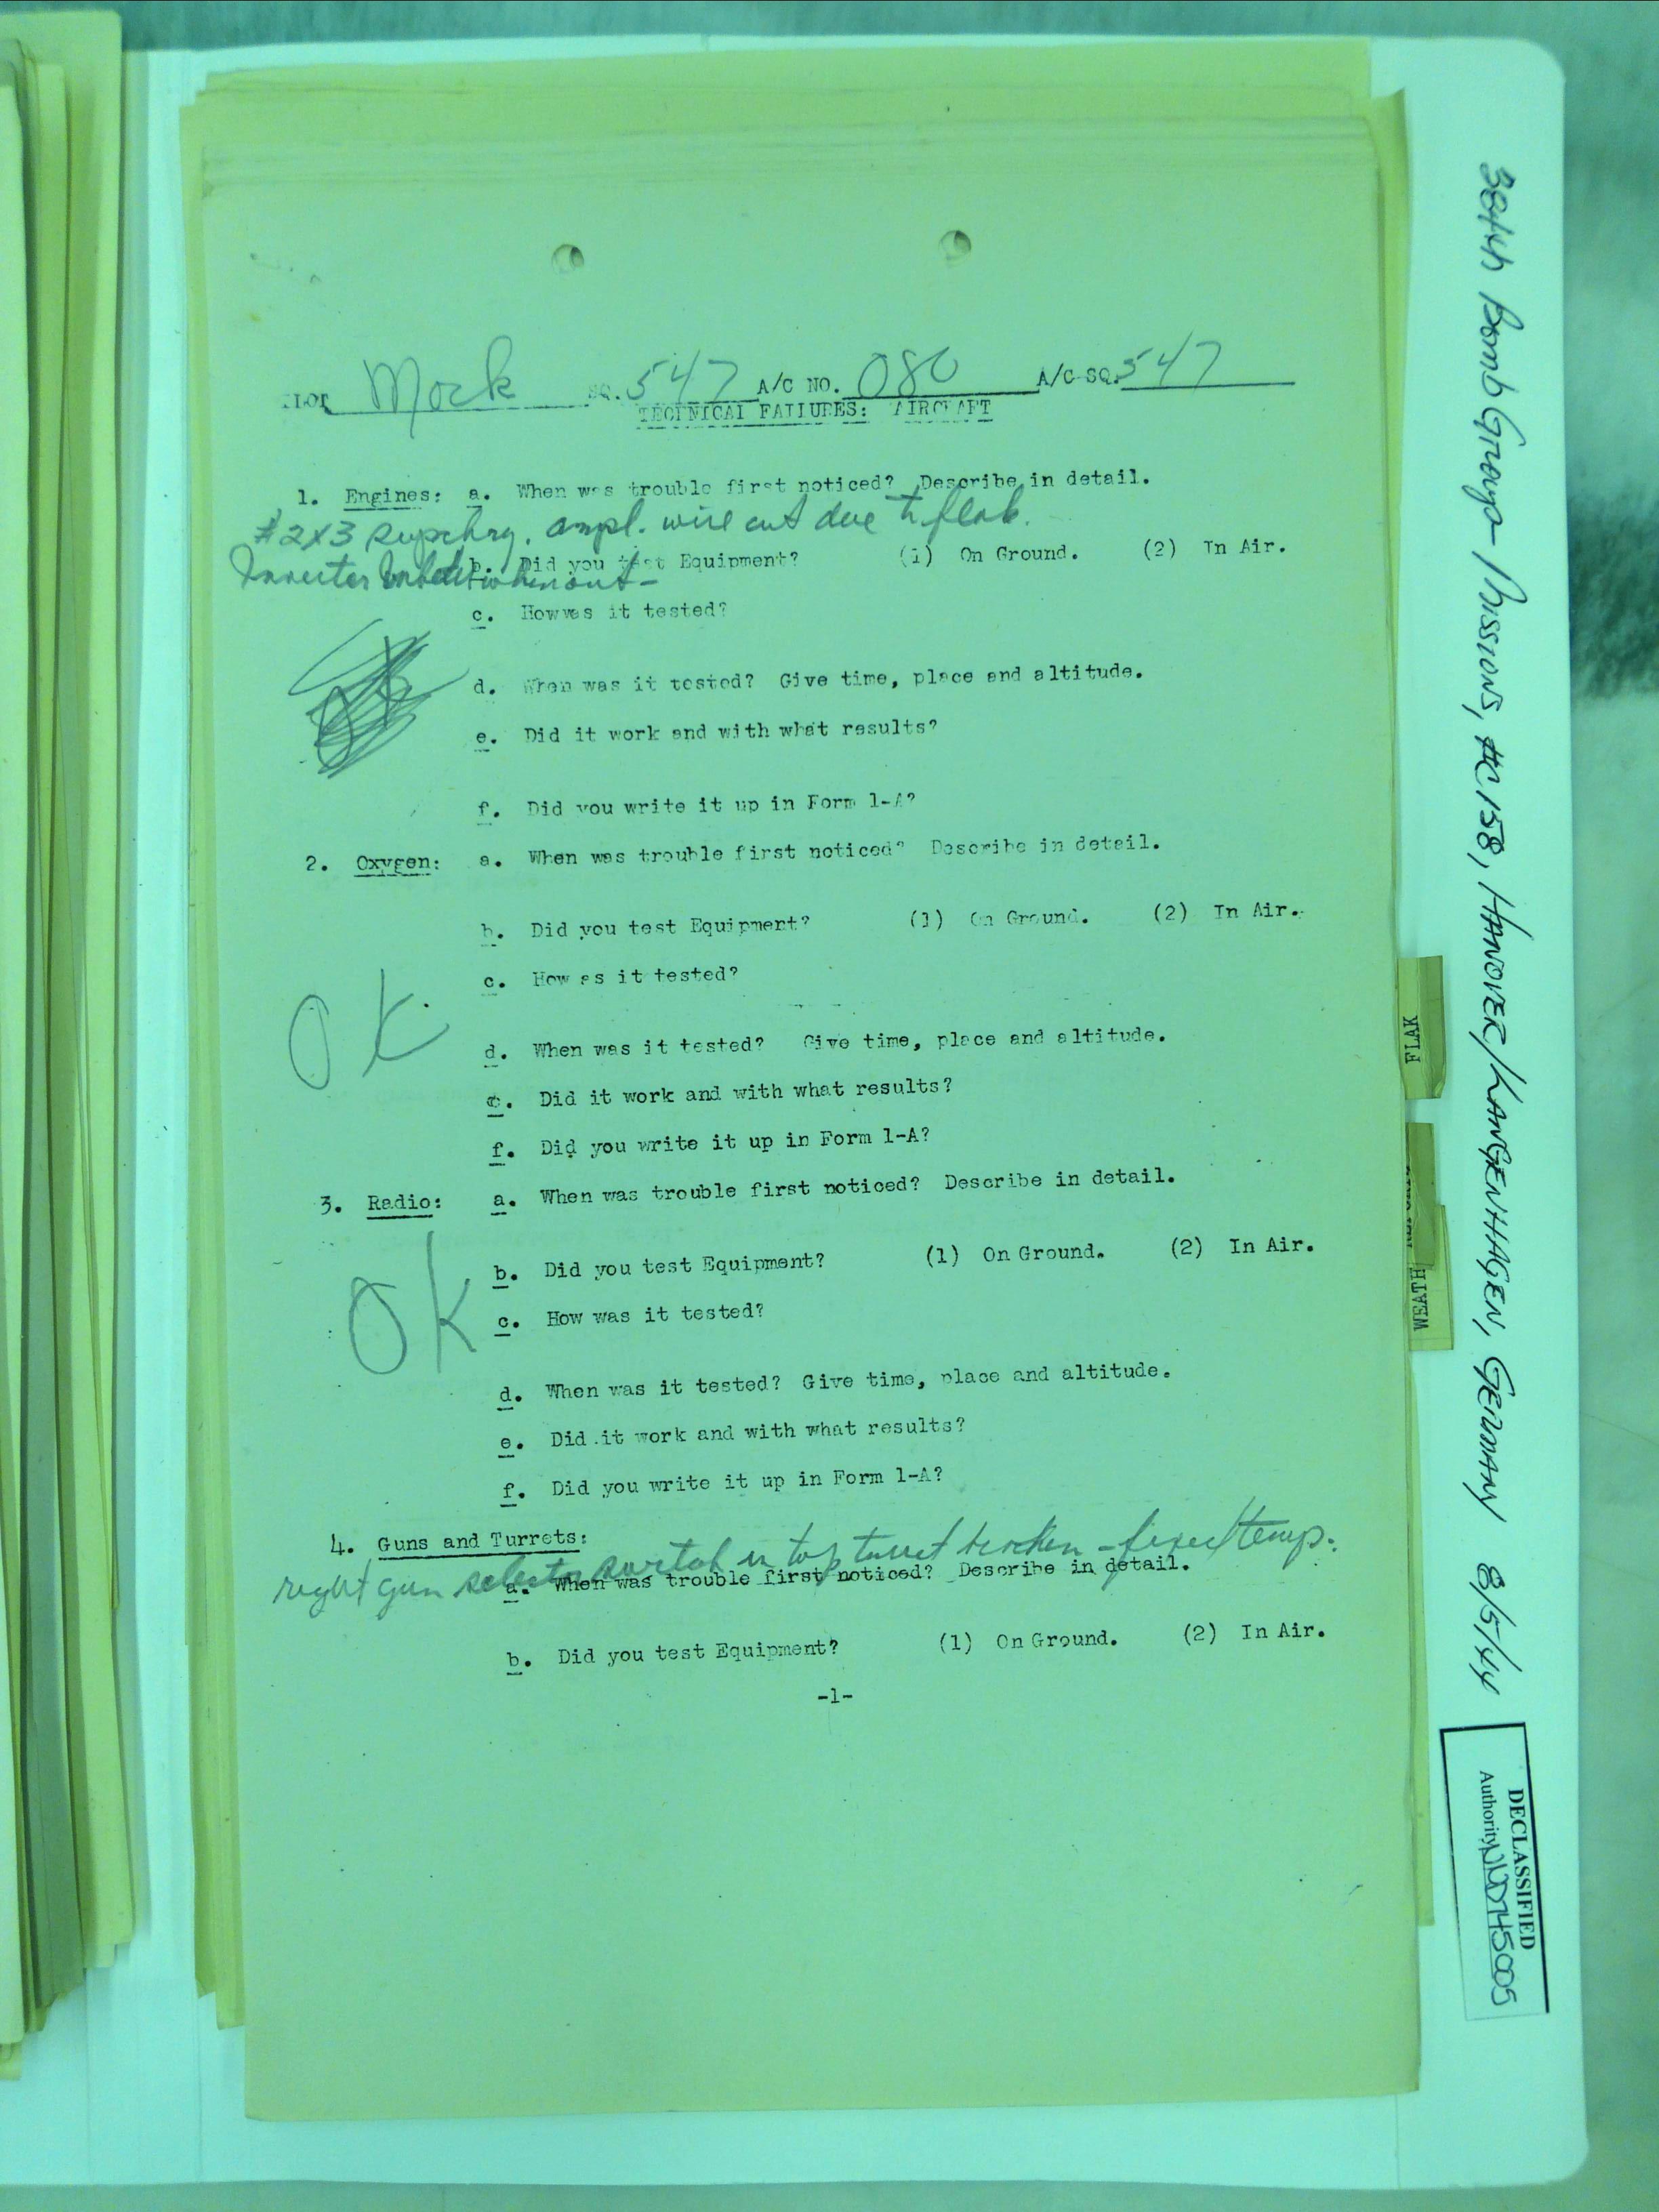 Mock SQ. 547 A/C NO. 080 A/C SQ. 547
TECHNICAL FAILURES: AIRCRAFT
1. Engines: a. When was trouble first noticed? Describe in detail.
#2 & 3 supchrg. ampl. wire cut due to flak.
b. Did you test Equipment? (1) On Ground. (2) In Air.
Inverter out -
c. How was it tested?
d. When was it tested? Give time, place and altitude.
e. Did it work and with what results?
f. Did you write it up in Form 1-A?
2. Oxygen: a. When was trouble first noticed? Describe in detail.
b. Did you test Equipment? (1) On Ground. (2) In Air.
c. How as it tested?
OK
d. When was it tested? Give time, place and altitude.
e. Did it work and with what results?
f. Did you write it up in Form 1-A?
3. Radio: a. When was trouble first noticed? Describe in detail.
b. Did you test Equipment? (1) On Ground. (2) In Air.
OK
c. How was it tested?
d. When was it tested? Give time, place and altitude.
e. Did it work and with what results?
f. Did you write it up in Form 1-A?
4. Guns and Turrets:
right gun selector switch in top turret broken - fixed temp.
a. When was trouble first noticed? Describe in detail.
b. Did you test Equipment? (1) On Ground. (2) In Air.
-1-
FLAK
WEATH
384th Bomb Group - Missions, #C158, HANOVER/LANGENHAGEN, GERMANY 8/5/44
DECLASSIFIED
Authority NND745005